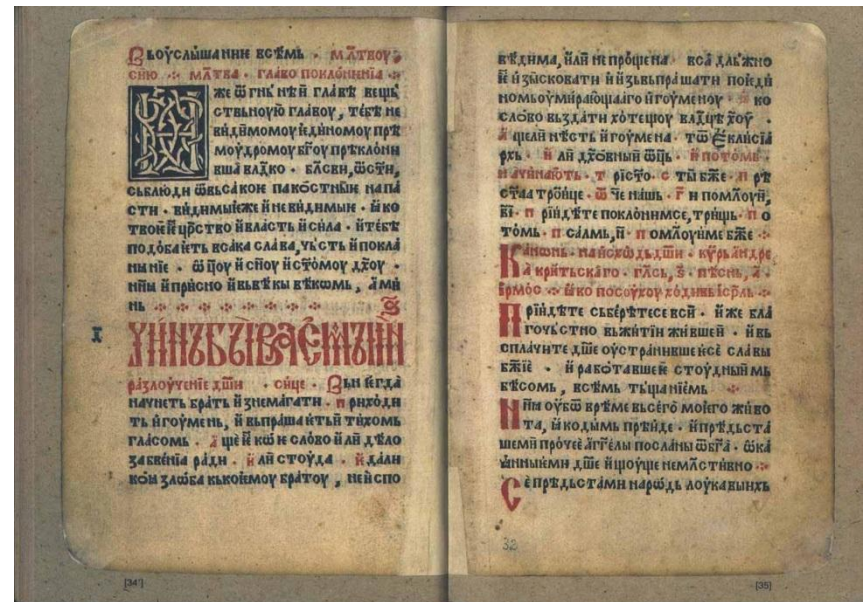 Вьоуслышанне всѣмь · мл҃твоу
сию ⁘ мл҃тва · главо поклонннїа ⁘
же ѿ гнь нѣй главѣ вещь
ствьноую главоу, тебѣ не
вндимомоу и единомоу прѣ
моудромоу бг҃оу прѣклонн
вша влдко · блсвн, ѿстн,
сьблюдн ѿвсакон пакостные напа
стн · вндимыеже и невндимыи · ꙗко
твой црство и власть и сила · и тебѣ
подобаеть всака слава, чьсть и покла
нꙗнїе · ѿцоу и сноу и стомоу дх҃оу ·
ннꙗ и прнсно и вьвѣкы вѣкѡмь, амн
нь
Чинъ бываемый на
разлоученїе дшн · сице · Вьн егда
начнеть брать изнемагати · приходи
ть игоумень, и вьпрашаить и тихомь
гласомь · аще и кое слово или дѣло
забвенїа ради · или стоуда · и дали
кои злоба кькоемоу братоу, неиспо
[34']
вѣдима, или не прощена · вса дльжно
е изысковати и изьвьпрашати поеди
номьоумирающаго игоуменоу · ꙗко
слово вьздати хотещоу влдцѣ хоу ·
Ащели нѣсть игоумена · тѡ еклисїа
рхь · или дховный ѿць · и потомь ·
начинають · Т рїсто · с тый бже · П рѣ
стаа троице · ѿ че нашь · г҃и помлоуй,
в҃і · п рїидѣте поклонимсе, трищь · п о
томь · псалмь, н҃ · помлоуиме бже ⁘
Канѡнь · на исходьдши · курьандре
а критьскаго · гласъ, ѕ҃ · пѣснь, а҃ ·
ермос ⁘ ꙗко посоухоу ходивь ісрль ⁘
Прїидѣте сьберѣтесе вси · иже бла
гочьстно вьжитїи живщеи · и вь
сплачите дше оустранившеисе славы
бжїе · и работавшеи стоудныимь
бѣсомь, всѣмь тьщанїемь ⁘
Ннꙗ оубѡ врѣме вьсего моего живо
та, ꙗкодымь прѣиде · и прѣдьста
шеми прочее аггелы посланы ѿ бга · ѡка
ꙗнныими дше ищоуще немлстивно ⁘
Се прѣдьстами народь лоукавыихь
32
[35]